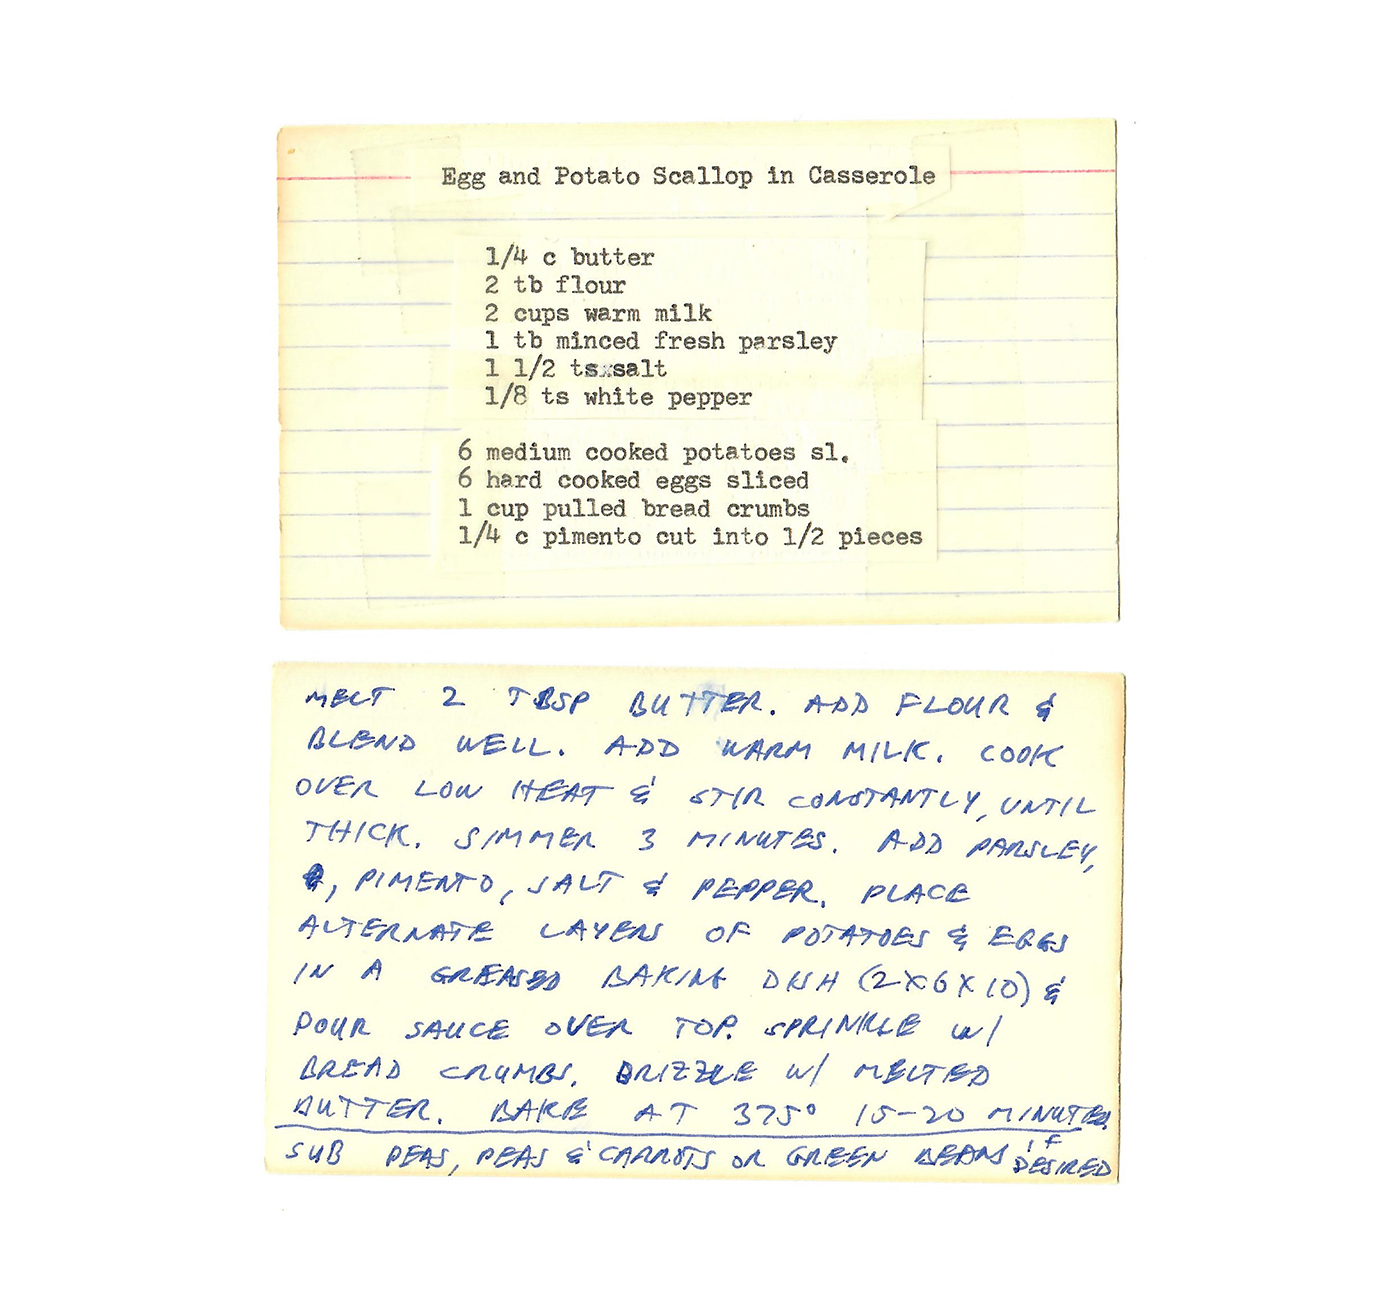 Egg and Potato Scallop in Casserole
1/4 c butter
2 tb flour
2 cups warm milk
1 tb minced fresh parsley
1 1/2 tsxsalt
1/8 ts white pepper
6 medium cooked potatoes sl.
6 hard cooked eggs sliced
1 cup pulled bread crumbs
1/4 c pimento cut into 1/2 pieces
MELT 2 TBSP BUTTER. ADD FLOUR &
BLEND WELL. ADD WARM MILK. COOK
OVER LOW HEAT & STIR CONSTANTLY, UNTIL
THICK. SIMMER 3 MINUTES. ADD PARSLEY,
, PIMENTO, SALT & PEPPER. PLACE
ALTERNATE LAYERS OF POTATOES & EGGS
IN A GREASED BAKING DISH (2X6X10) &
POUR SAUCE OVER TOP. SPRINKLE W/
BREAD CRUMBS. DRIZZLE W/ MELTED
BUTTER. BAKE AT 375° 15-20 MINUTES.
SUB PEAS, PEAS & CARROTS OR GREEN BEANS IF DESIRED